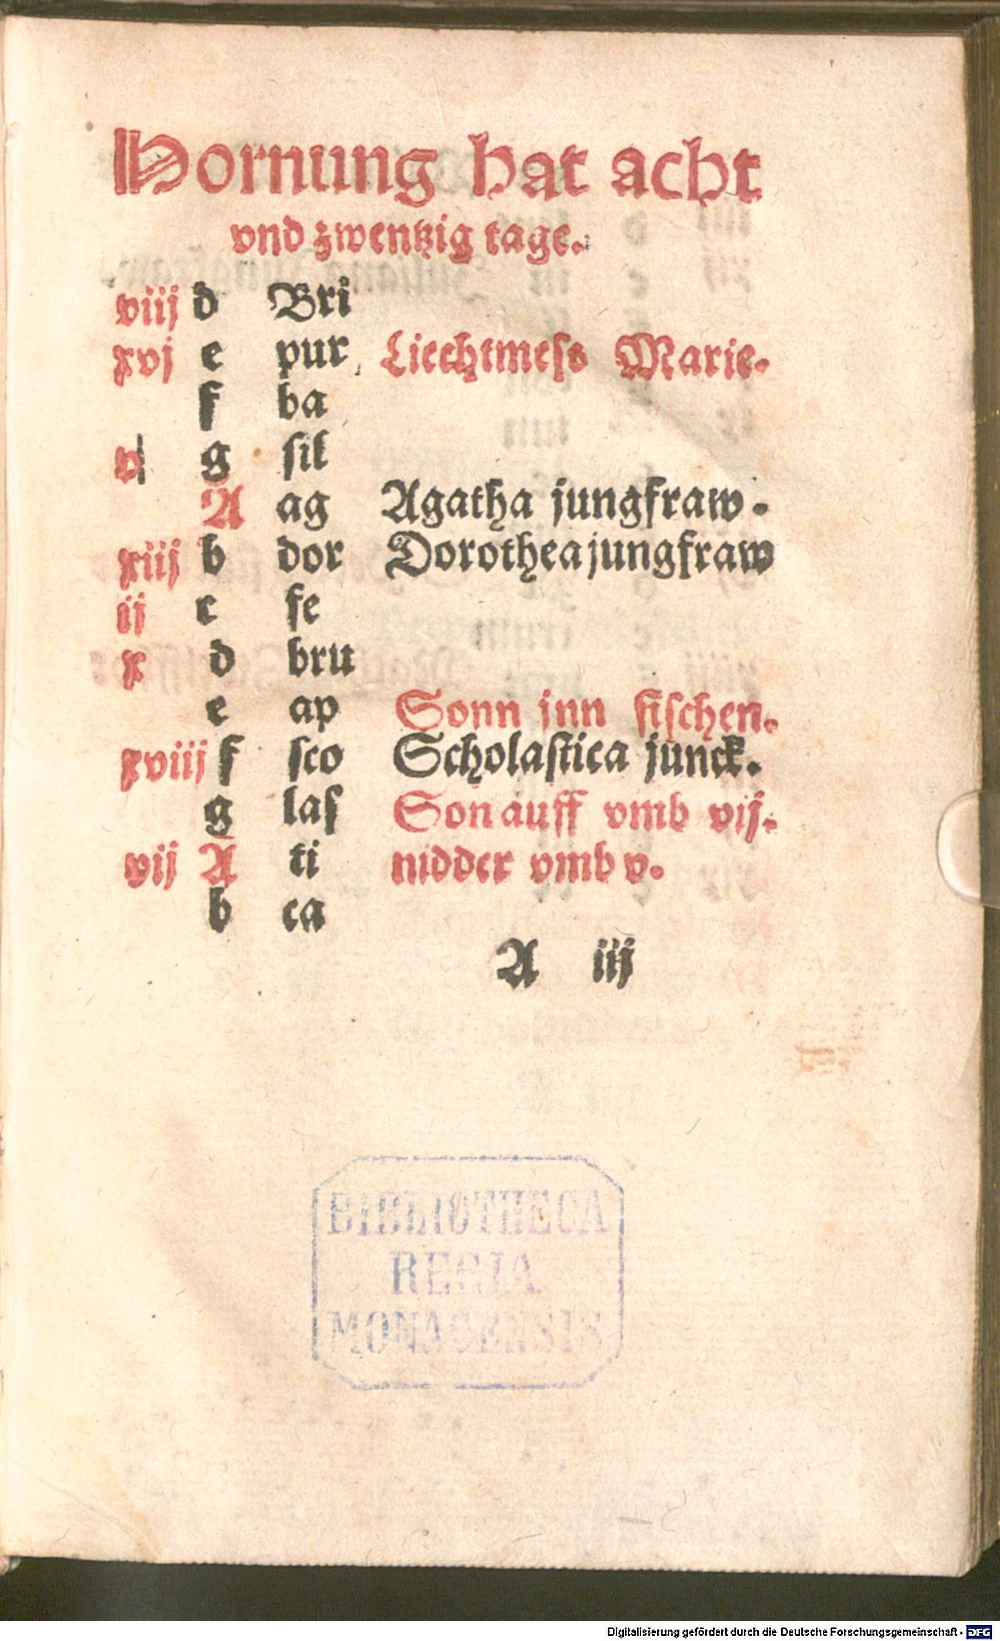 Hornung hat acht
vnd zwentzig tage.
viij d Bri
xvj e pur Liechtmess Marie.
f ba
v g sil
A ag Agatha jungfraw.
xiij b dor Dorothea jungfraw
ij c fe
x d bru
e ap Sonn inn fischen.
xviij f sco Scholastica junck.
g las Son auff vmb vij.
vij A ti nidder vmb v.
b ca
A iij
BIBLIOTHECA
REGIA
MONACENSIS
Digitalisierung gefördert durch die Deutsche Forschungsgemeinschaft - DFG